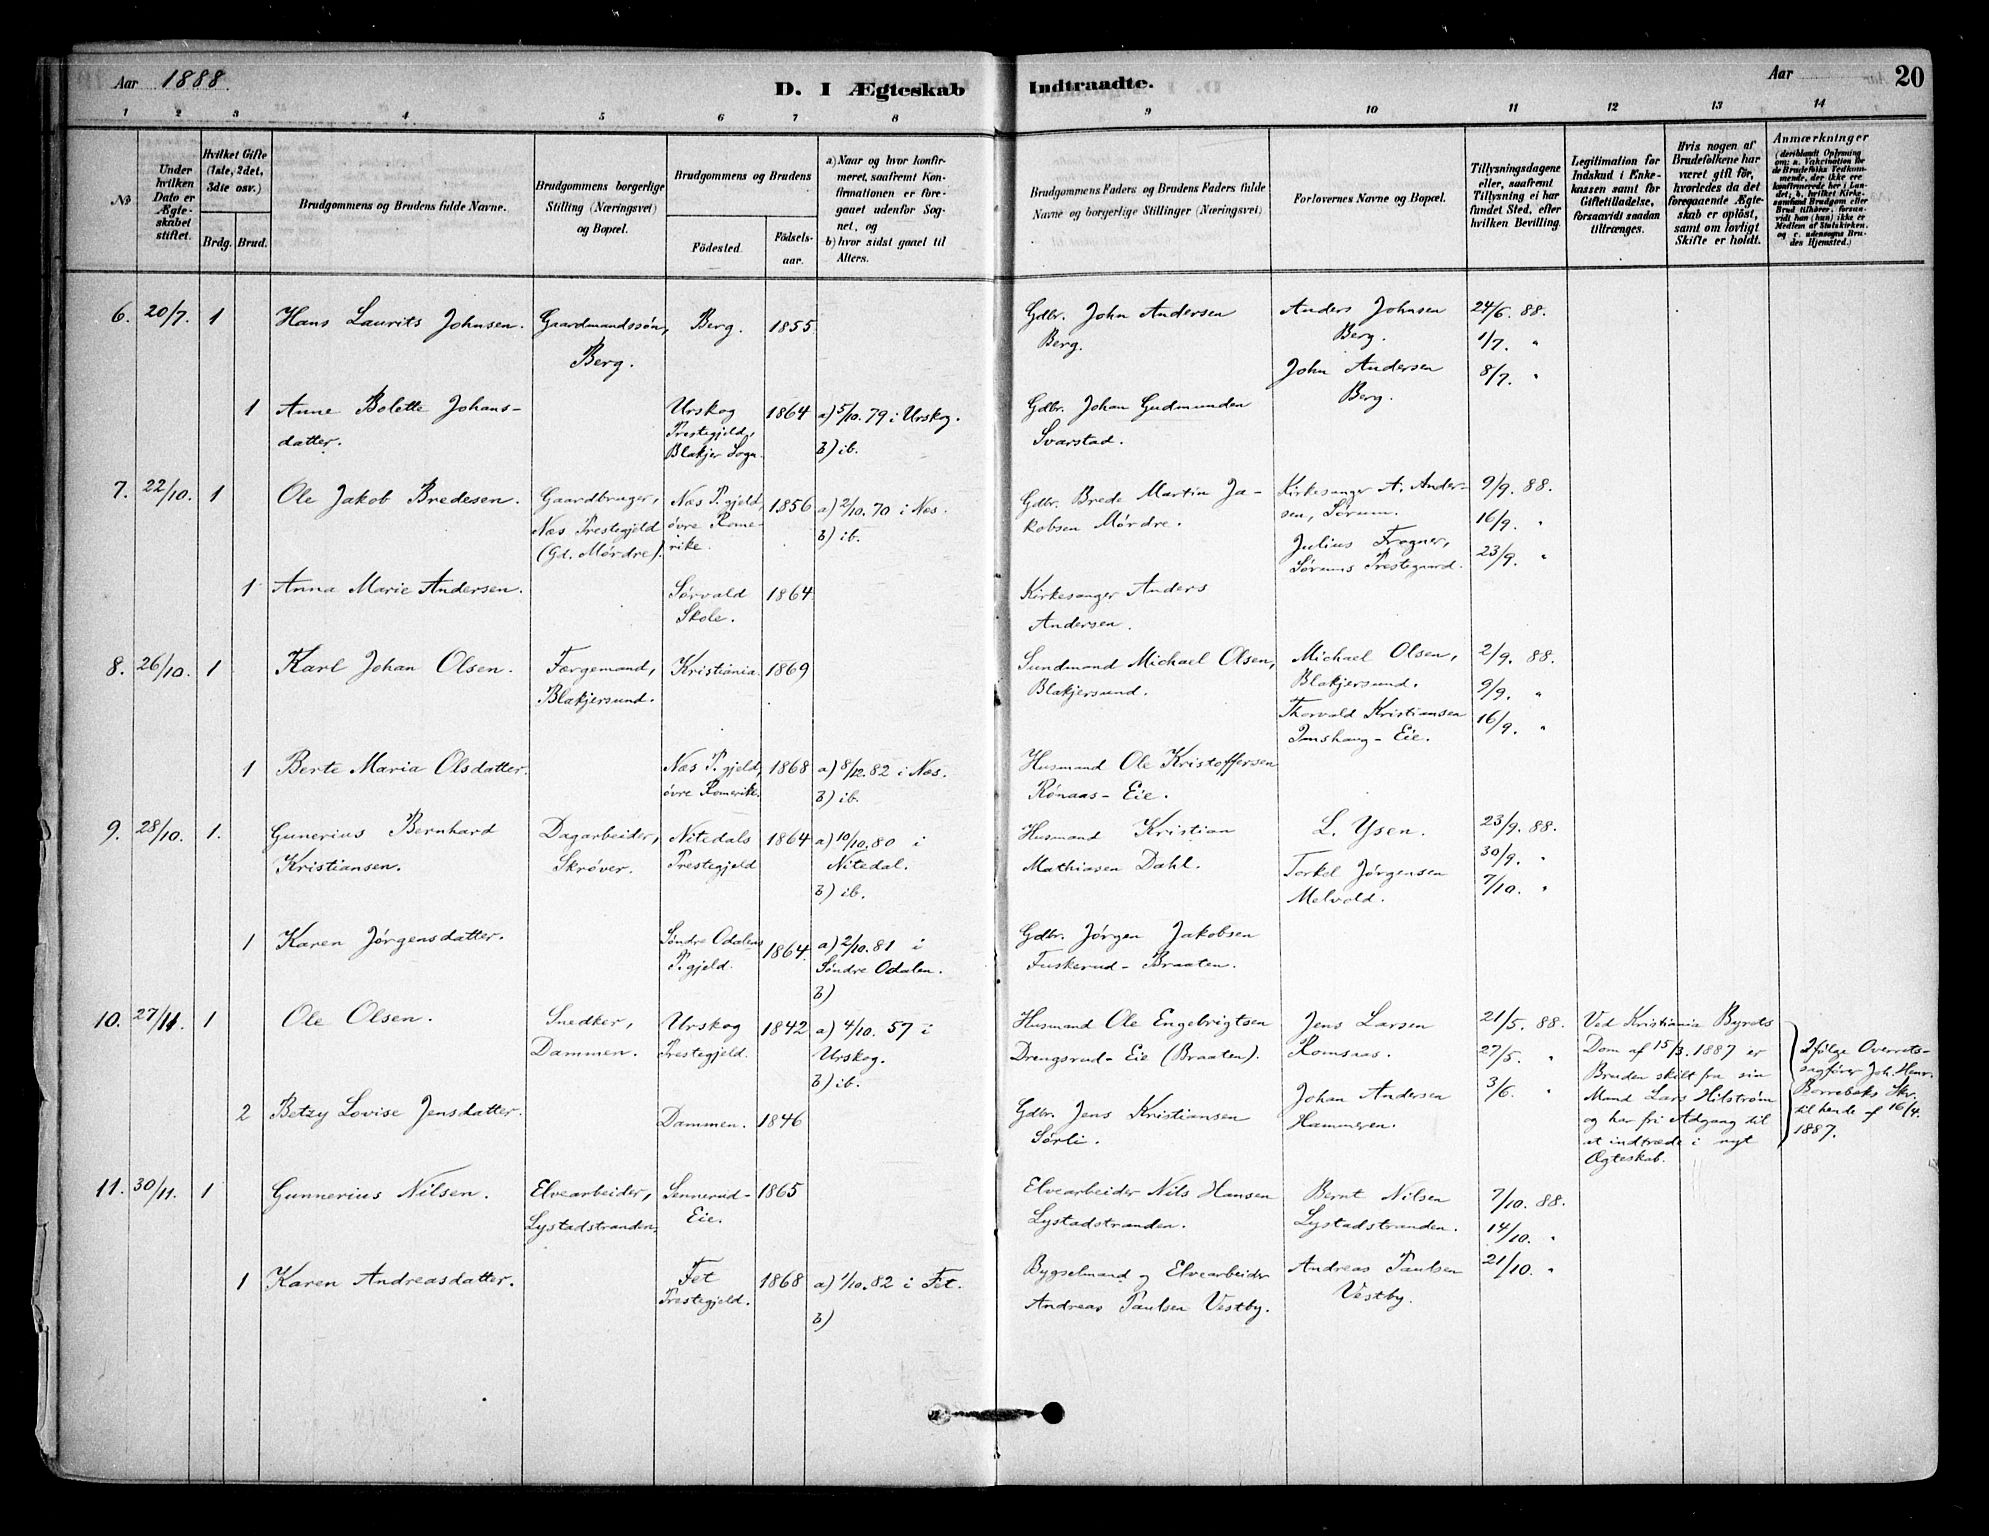 Aar 1888. D. I Ægteskab Indtraadte. Aar 20
1 2 3 4 5 6 7 8 9 10 11 12 13 14
No
Under hvilken Dato er Ægteskabet stiftet.
Hvilket Gifte (1ste, 2det, 3die osv.)
Brdg. Brud.
Brudgommens og Brudens fulde Navne.
Brudgommens borgerlige Stilling (Næringsvei) og Bopæl.
Brudgommens og Brudens
Födested. Födsels-aar.
a) Naar og hvor konfirmeret, saafremt Konfirmationen er foregaaet udenfor Sognet, og
b) hvor sidst gaaet til Alters.
Brudgommens Faders og Brudens Faders fulde Navne og borgerlige Stillinger (Næringsvei)
Forlovernes Navne og Bopæl.
Tillysningsdagene eller, saafremt Tillysning ei har fundet Sted, efter hvilken Bevilling.
Legitimation for Indskud i Enkekassen samt for Giftetilladelse, forsaavidt saadan tiltrænges.
Hvis nogen af Brudefolkene har været gift för, hvorledes da det foregaaende Ægteskab er oplöst, samt om lovligt Skifte er holdt.
Anmærkninger (deriblandt Oplysning om: a. Vakcination for de Brudefolks Vedkommende, der ikke ere konfirmerede her i Landet, b. hvilket Kirkesamfund Brudgom eller Brud tilhörer, forsaavidt han (hun) ikke er Medlem af Statskirken, og c. udensogns Brudes Hjemsted.)
6. 20/7. 1 Hans Laurits Johnsen. Gaardmandssøn, Berg. 1855. Gdbr. John Andersen Anders Johnsen 24/6. 88.
Berg. Berg. Berg. 1/7. "
John Andersen 8/7. "
1 Anne Bolette Johans- Urskog 1864 a) 5/10. 79 i Urskog. Gdbr. Johan Gudmunden Berg.
datter. Prestegjeld, b) ib. Svarstad.
Blakjer Sogn.
7. 22/10. 1 Ole Jakob Bredesen. Gaardbruger, Næs P.gjeld, 1856 a) 2/10. 70 i Næs. Gdbr. Brede Martin Ja- Kirkesanger A. Ander- 9/9. 88.
Næs Prestegjeld øvre Rome- b) ib. kobsen Mørdre. sen, Sørum. 16/9. "
(Gd. Mørdre). rike. Julius Frogner, 23/9. "
Sørums Prestegaard.
1 Anna Marie Andersen. Sørvald 1864 Kirkesanger Anders
Skole. Andersen.
8. 26/10. 1 Karl Johan Olsen. Færgemand, Kristiania. 1869 Sundmand Michael Olsen, Michael Olsen, 2/9. 88.
Blakjersund. Blakjersund. Blakjersund. 9/9. "
Thorvald Kristiansen 16/9. "
Imshaug-Eie.
1 Berte Maria Olsdatter. Næs P.gjeld, 1868 a) 8/12. 82 i Næs. Husmand Ole Kristoffersen
øvre Romerike. b) ib. Rønaas-Eie.
9. 28/10. 1. Gunerius Bernhard Dagarbeider, Nitedals 1864 a) 10/10. 80 i Husmand Kristian L. Ysen. 23/9. 88.
Kristiansen. Skrøver. Prestegjeld Nitedal. Mathiasen Dahl. Torkel Jørgensen 30/9. "
b) ib. Melvold. 7/10. "
1 Karen Jørgensdatter. Søndre Odalens 1864 a) 2/10. 81 i Gdbr. Jørgen Jakobsen
P.gjeld. Søndre Odalen. Fuskerud-Braaten.
b)
10. 27/11. 1 Ole Olsen. Snedker, Urskog 1842 a) 4/10. 57 i Husmand Ole Engebrigtsen Jens Larsen 21/5. 88. Ved Kristiania Byrets
Dammen. Prestegjeld. Urskog. Drengsrud-Eie (Braaten). Romsaas. 27/5. " Dom af 15/3. 1887 er Ifølge Overrets-
b) ib. Johan Andersen 3/6. " Bruden skilt fra sin sagfører Joh. Henr.
2 Betzy Lovise Jensdatter. Dammen. 1846 Gdbr. Jens Kristiansen Hammeren. Mand Lars Hilstrøm Borrebeks Skr.
Sørli. og har fri Adgang til til hende af 16/4.
at indtræde i nyt 1887.
Ægteskab.
11. 30/11. 1 Gunnerius Nilsen. Elvearbeider, Sennerud- 1865 Elvearbeider Nils Hansen Bernt Nilsen 7/10. 88.
Lystadstranden. Eie. Lystadstranden. Lystadstranden. 14/10. "
1 Karen Andreasdatter. Fet 1868 a) 1/10. 82 i Fet. Bygselmand og Elvearbeider Andreas Paulsen 21/10. "
Prestegjeld. b) Andreas Paulsen Vestby. Vestby.